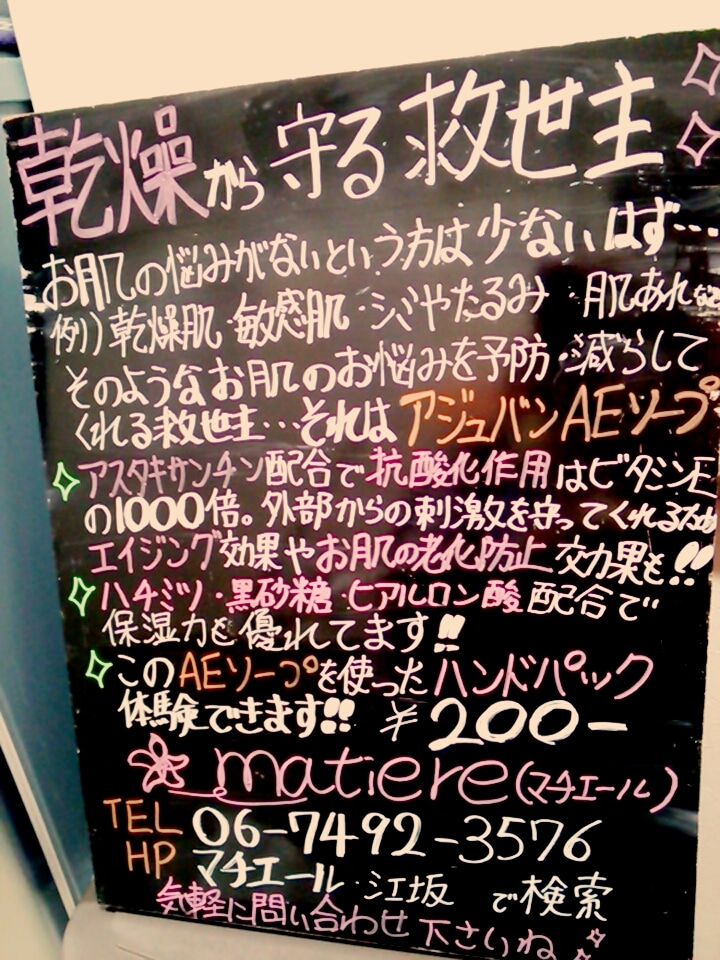 乾燥から守る救世主
お肌の悩みがないという方は少ないはず…
例)乾燥肌・敏感肌・シワやたるみ・肌あれなど
そのようなお肌のお悩みを予防・減らして
くれる救世主…それはアジュバンAEソープ
アスタキサンチン配合で抗酸化作用はビタミンE
の1000倍。外部からの刺激を守ってくれるため
エイジング効果やお肌の老化防止効果も!!
ハチミツ・黒砂糖・ヒアルロン酸配合で
保湿力も優れてます!!
このAEソープを使ったハンドパック
体験できます!! ¥200-
matiere(マチエール)
TEL 06-7492-3576
HP マチエール・江坂 で検索
気軽に問い合わせ下さいね